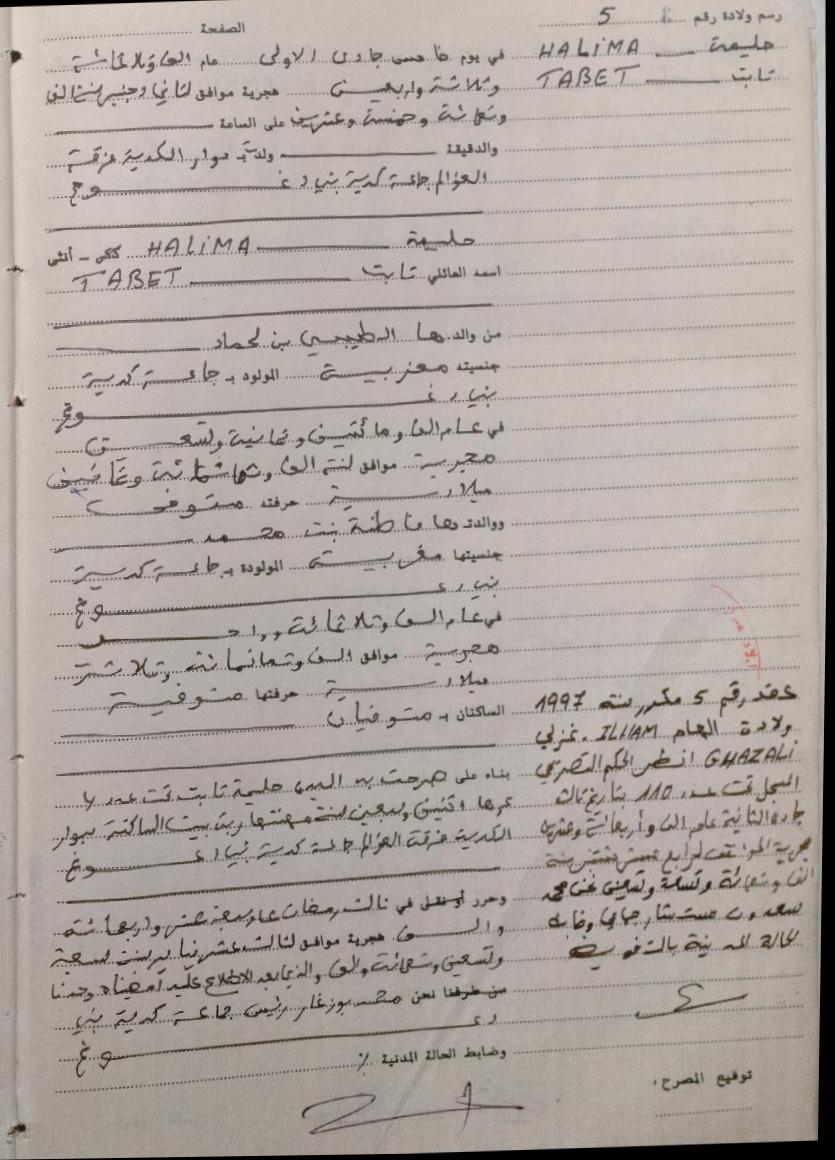 رسم ولادة رقم 5
الصفحة
حليمة HALIMA
تابت TABET
في يوم خامس جمادى الاولى عام الف وثلاثمائة
وثلاثة واربعين هجرية موافق لثاني دجنبر سنة الف
وتسعمائة وخمسة وعشرين على الساعة
والدقيقة ولدت بـ دوار الكدية فرقة
العوالم جماعة كدية بني دغوغ
حليمة HALIMA ذكر - أنثى
اسمه العائلي تابت TABET
من والدها الطيبي بن لحماد
جنسيته مغربية المولود بـ جماعة كدية
بني دغوغ
في عام الف ومائتين وثمانية وتسعين
هجرية موافق لسنة الف وثمانمائة وثمانين
ميلادية حرفته متوفى
ووالدتها فاطنة بنت محمد
جنسيتها مغربية المولودة بـ جماعة كدية
بني دغوغ
في عام الف وثلاثمائة وواحد
هجرية موافق الف وثمانمائة وثلاثة
ميلادية حرفتها متوفية
الساكنان بـ متوفيان
بناء على صرحت به السيدة حليمة تابت تحت عدد 4
عمرها اثنين وسبعين سنة مهنتها ربة بيت الساكنة بدوار
الكدية فرقة العوالم جماعة كدية بني دغوغ
وحرر أو نقل في ثالث رمضان عام سبعة عشر واربعمائة
والف هجرية موافق لثالث عشر يناير سنة سبعة
وتسعين وتسعمائة والف والذي بعد الاطلاع عليه أمضيناه وحدنا
من طرفنا نحن محمد بوزغار رئيس جماعة كدية بني
دغوغ
وضابط الحالة المدنية ٪
عقد رقم 5 مكرر سنة 1997
ولادة الهام ILHAM. غزلي
GHAZALI انظر الحكم التصريحي
المسجل تحت عدد 110 بتاريخ ثالث
جمادى الثانية عام الف وأربعمائة وعشرين
هجرية الموافق لرابع عشر شتنبر سنة
الف وتسعمائة وتسعة وتسعين نحن محمد
سعدون مستشار جماعي وضابط
الحالة المدنية بالتفويض
توقيع المصرح،